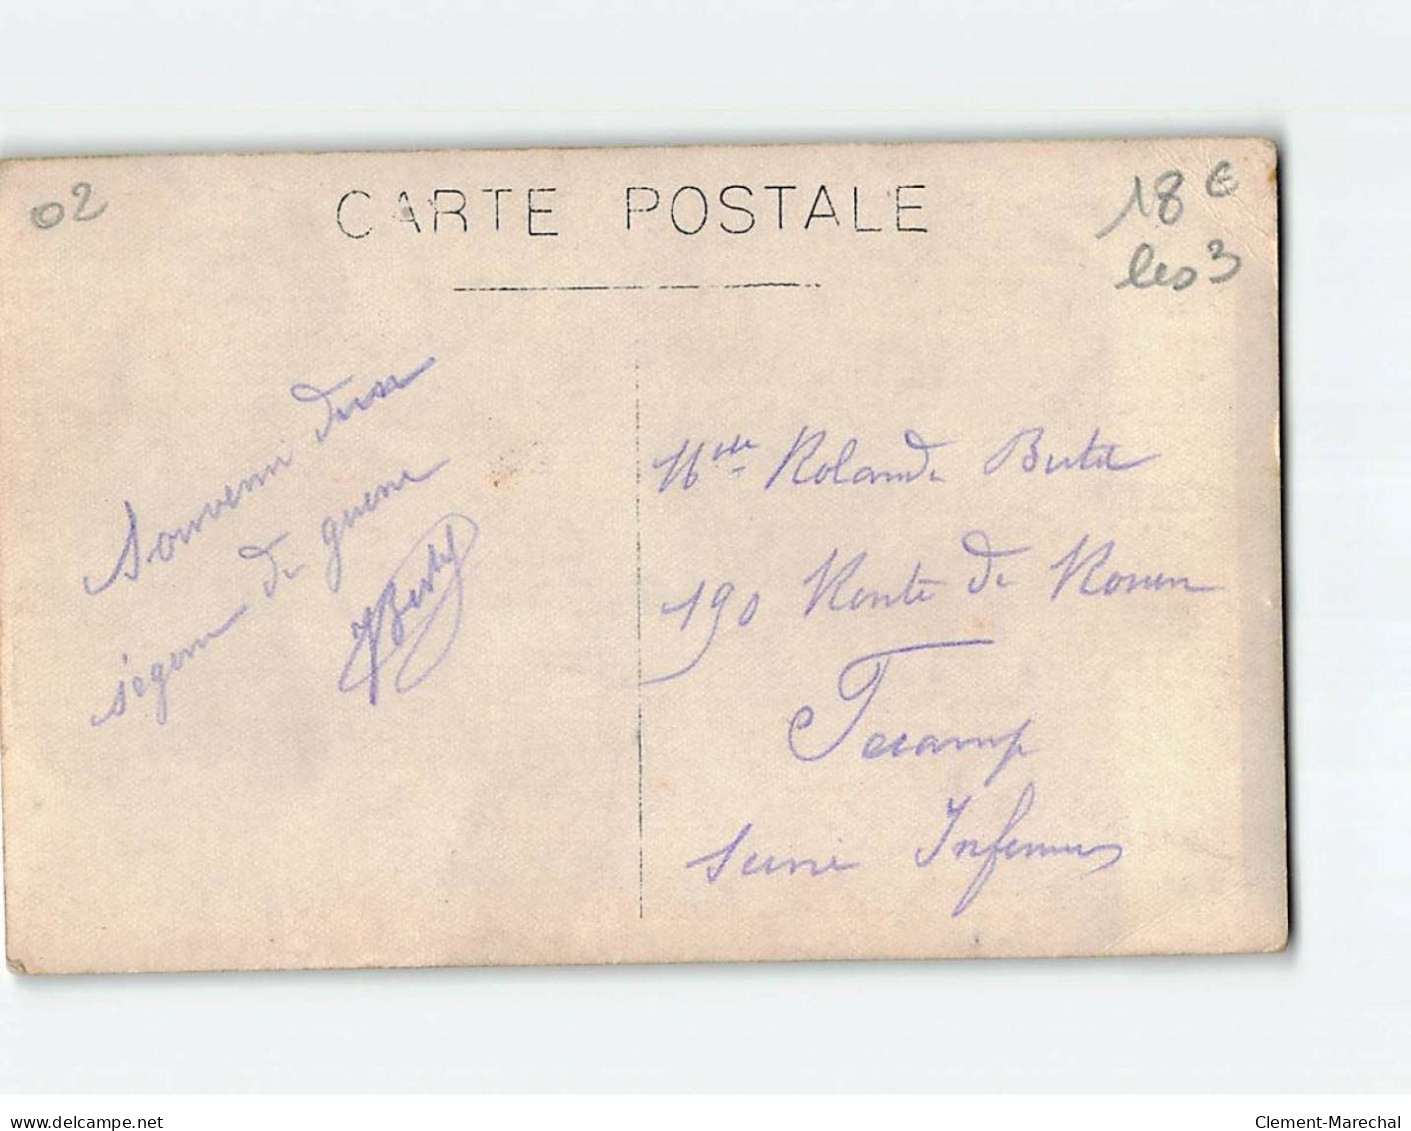 02
CARTE POSTALE
18 €
les 3
Souvenir d'un
séjour de guerre
Mlle Rolande
190 Route de Rouen
Fecamp
Seine Inferieure
delcampe.net
Clement-Marechal